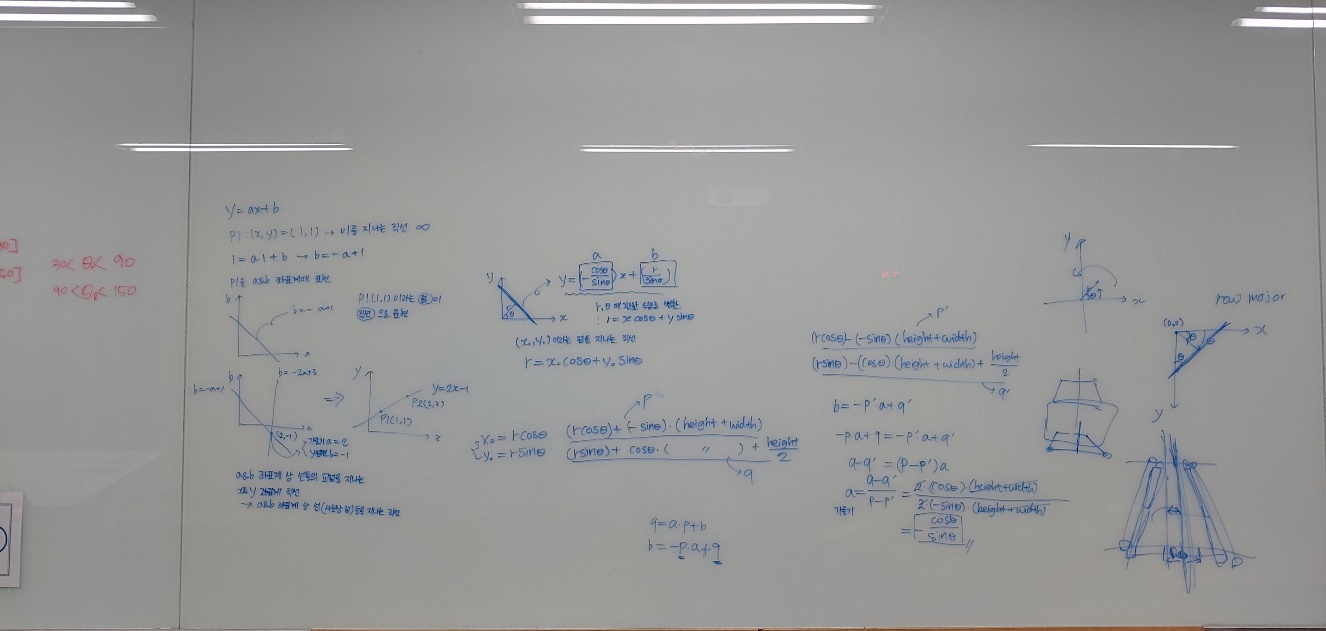 0]
50]
30< θ< 90
90<θ<150
y= ax+b
P1:(x,y)=(1,1) → 이를 지나는 직선 ∞
1= a·1+b → b=-a+1
P1을 a&b 좌표계에 표현
b
b=-a+1
a
P1(1,1) 이라는 점이
직선 으로 표현
b=-a+1
b
b=-2a+3
a
(2,-1)
기울기 a=2
y절편 b=-1
⇒
y
y=2x-1
P2(2,3)
P1(1,1)
x
a&b 좌표계 상 선들의 교점을 지나는
x&y 좌표계 직선
→ a&b 좌표계 상 점들을 지나는 직선
y
θ
x
a
b
y=(-cosθ/sinθ)x+(r/sinθ)
r,θ에 관한 식으로 변환
: r=x cosθ+y sinθ
(x₀,y₀) 이라는 점을 지나는 직선
r=x₀cosθ+y₀sinθ
x₀=rcosθ
y₀=rsinθ
p
(rcosθ)+(-sinθ)·(height+width)
(rsinθ)+ cosθ·( 〃 ) + height/2
q
q=a·p+b
b=-p·a+q
p'
(rcosθ)-(-sinθ)(height+width)
(rsinθ)-(cosθ)(height+width)+ height/2
q'
b=-p'a+q'
-pa+q=-p'a+q'
q-q'=(p-p')a
a= q-q'/p-p' = 2·(cosθ)·(height+width)/2·(-sinθ)·(height+width)
기울기
=-cosθ/sinθ
y
θ
x
row major
(0,0)
x
θ
θ
y